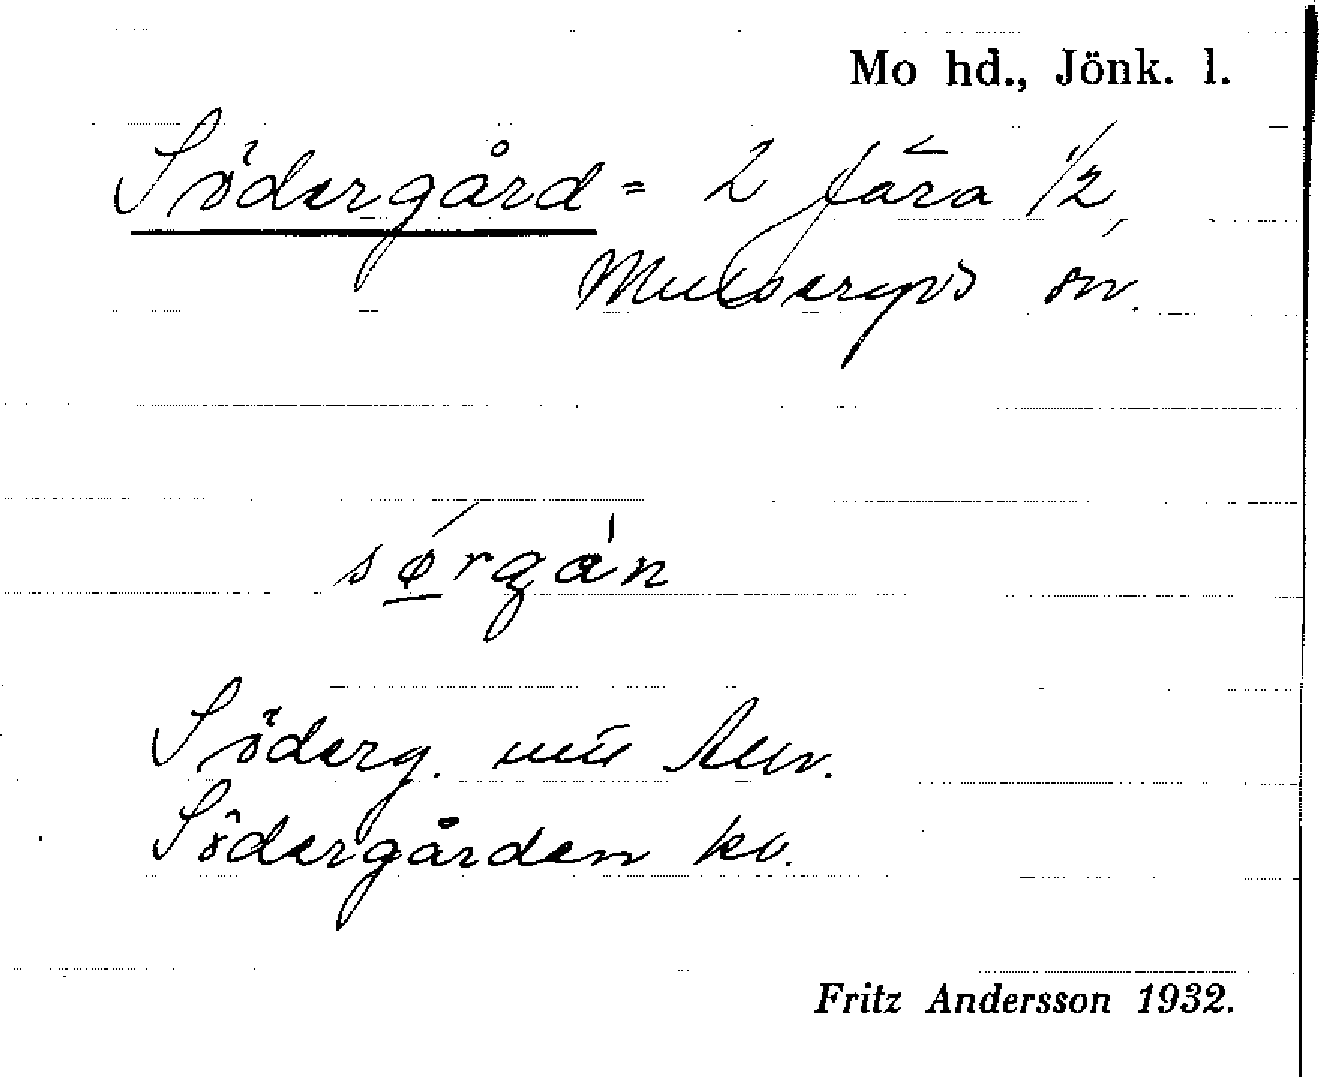 Mo hd., Jönk. l.
Södergård = 2 Jära 1/2,
Mulseryds sn.
sørgán
Söderg.
Södergården
Fritz Andersson 1932.